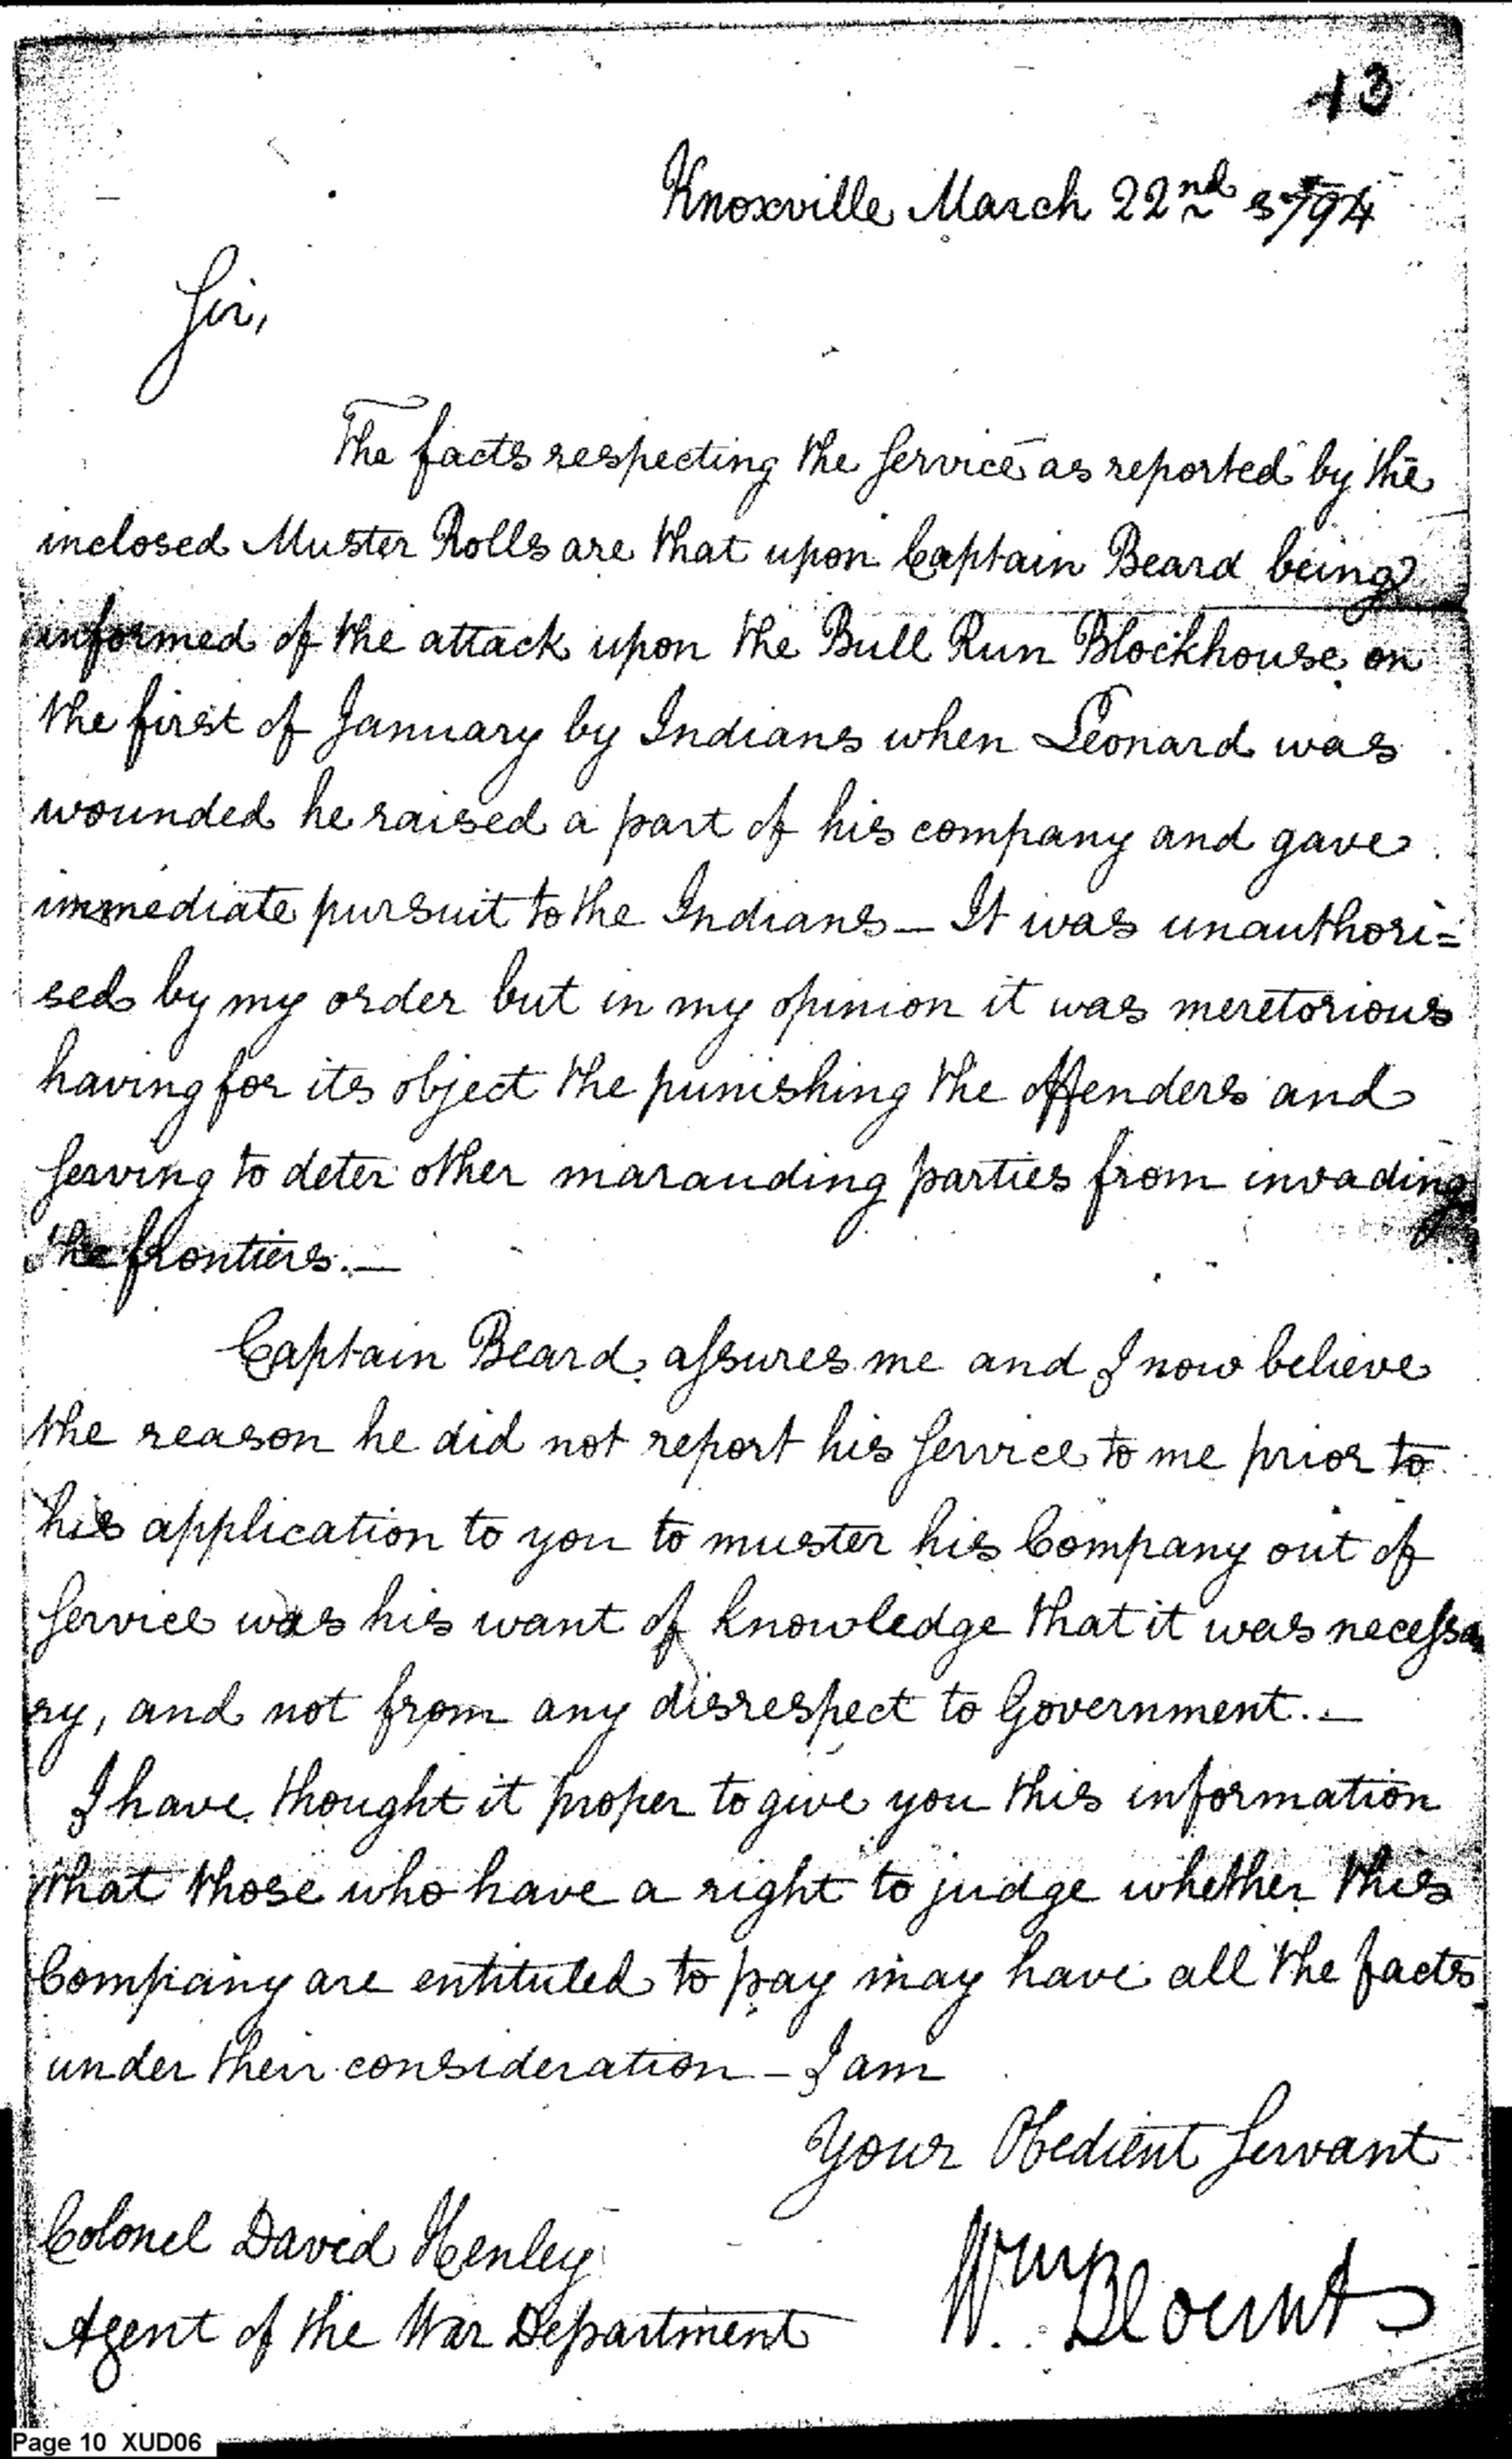 13
Knoxville March 22nd 1794
Sir,
The facts respecting the Service as reported by the
inclosed Muster Rolls are that upon Captain Beard being
informed of the attack upon the Bull Run Blockhouse on
the first of January by Indians when Leonard was
wounded he raised a part of his company and gave
immediate pursuit to the Indians — It was unauthori=
sed by my order but in my opinion it was meretorious
having for its object the punishing the offenders and
serving to deter other marauding parties from invading
the frontiers. —
Captain Beard assures me and I now believe
the reason he did not report his Service to me prior to
his application to you to muster his Company out of
Service was his want of knowledge that it was necessa
ry, and not from any disrespect to Government. —
I have thought it proper to give you this information
that those who have a right to judge whether this
Company are entituled to pay may have all the facts
under their consideration — I am
Your Obedient Servant
Colonel David Henley
Agent of the War Department
Wm Blount
Page 10 XUD06